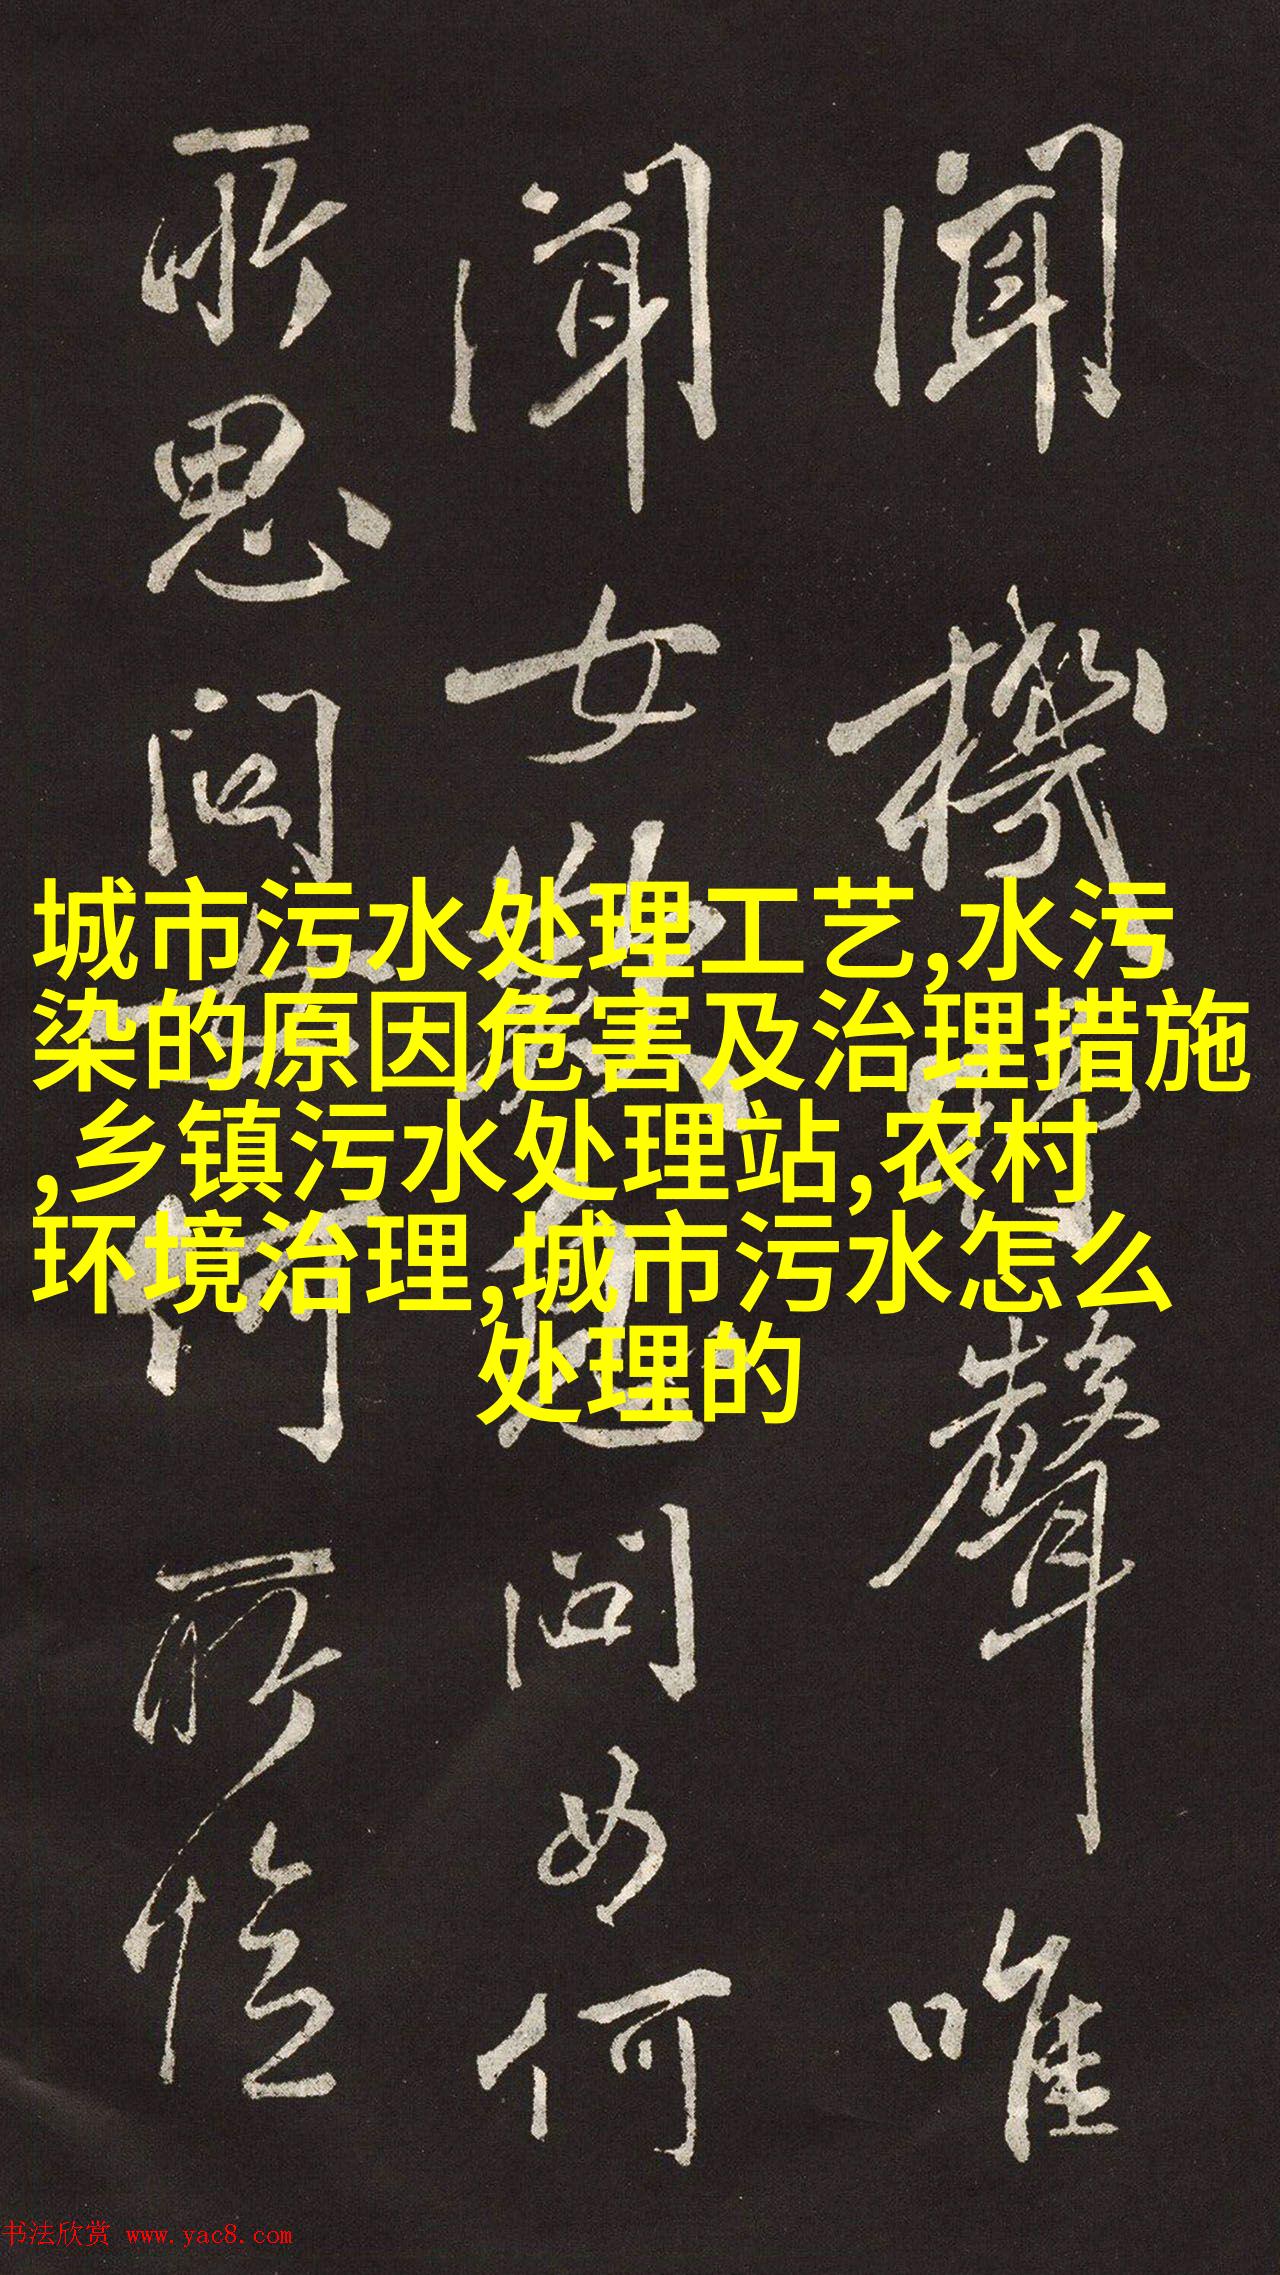 聞機杼聲唯
聞女歎息問女何
所思問女何所憶
城市污水处理工艺,水污
染的原因危害及治理措施
,乡镇污水处理站,农村
环境治理,城市污水怎么
处理的
书法欣赏 www.yac8.com